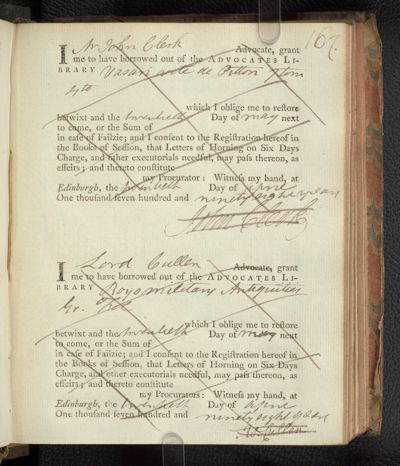 167.
I Mr John Clerk Advocate, grant
me to have borrowed out of the ADVOCATES LI-
BRARY Vasari vite de Pittori 7 tom
4to
which I oblige me to restore
betwixt and the twentieth Day of May next
to come, or the Sum of
in case of Failzie; and I consent to the Registration hereof in
the Books of Session, that Letters of Horning on Six Days
Charge, and other executorials needful, may pass thereon, as
effeirs; and thereto constitute
my Procurator: Witness my hand, at
Edinburgh, the twentieth Day of April
One thousand seven hundred and ninety eight years
John Clerk
I Lord Cullen Advocate, grant
me to have borrowed out of the ADVOCATES LI-
BRARY Roys military Antiquities
Gr. Fol
which I oblige me to restore
betwixt and the twentieth Day of May next
to come, or the Sum of
in case of Failzie; and I consent to the Registration hereof in
the Books of Session, that Letters of Horning on Six Days
Charge, and other executorials needful, may pass thereon, as
effeirs; and thereto constitute
my Procurators: Witness my hand, at
Edinburgh, the twentieth Day of April
One thousand seven hundred and ninety eight years
Cullen